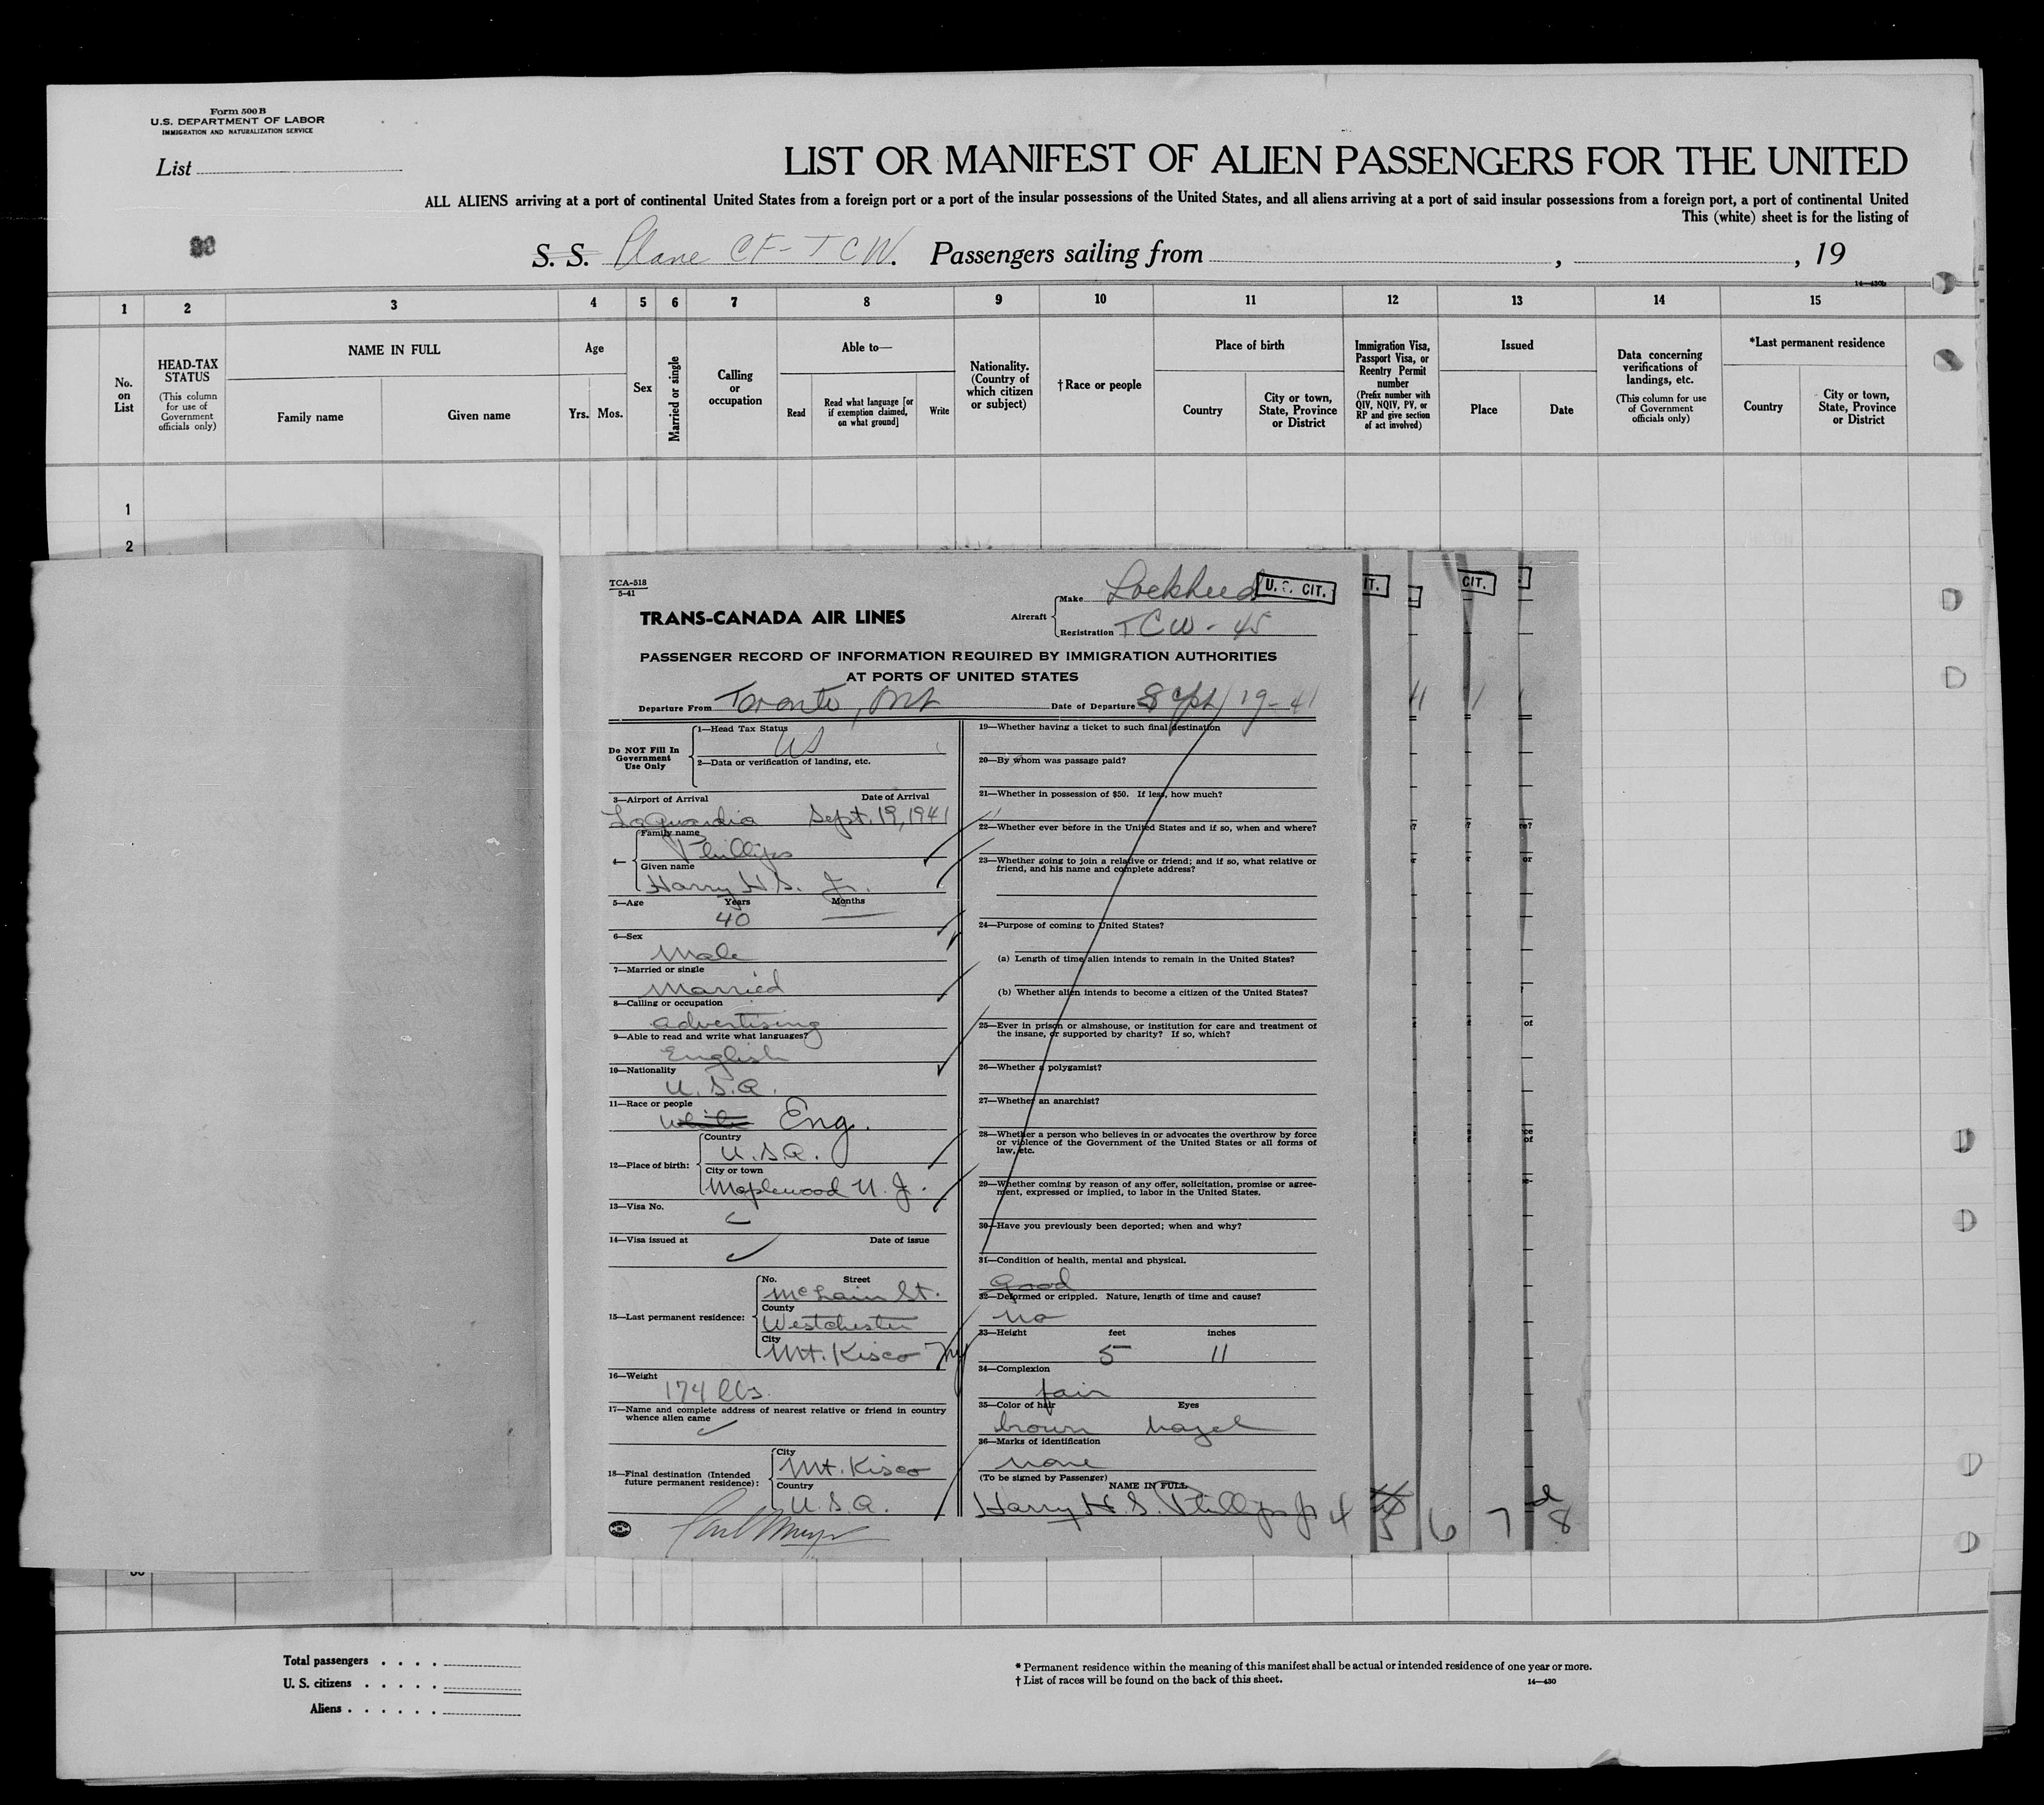 Form 500 B
U.S. DEPARTMENT OF LABOR
IMMIGRATION AND NATURALIZATION SERVICE
List
LIST OR MANIFEST OF ALIEN PASSENGERS FOR THE UNITED
ALL ALIENS arriving at a port of continental United States from a foreign port or a port of the insular possessions of the United States, and all aliens arriving at a port of said insular possessions from a foreign port, a port of continental United
This (white) sheet is for the listing of
S. S. Plane CF-TCW. Passengers sailing from , , 19
14—430b
1 2 3 4 5 6 7 8 9 10 11 12 13 14 15
No. on List
HEAD-TAX STATUS
(This column for use of Government officials only)
NAME IN FULL
Family name
Given name
Age
Yrs. Mos.
Sex
Married or single
Calling or occupation
Able to—
Read
Read what language [or if exemption claimed, on what ground]
Write
Nationality. (Country of which citizen or subject)
† Race or people
Place of birth
Country
City or town, State, Province or District
Immigration Visa, Passport Visa, or Reentry Permit number
(Prefix number with QIV, NQIV, PV, or RP and give section of act involved)
Issued
Place
Date
Data concerning verifications of landings, etc.
(This column for use of Government officials only)
*Last permanent residence
Country
City or town, State, Province or District
1
2
TCA-518
5-41
TRANS-CANADA AIR LINES
Aircraft
Make Lockheed
U.S. CIT.
IT.
CIT.
Registration TCW-45
PASSENGER RECORD OF INFORMATION REQUIRED BY IMMIGRATION AUTHORITIES
AT PORTS OF UNITED STATES
Departure From Toronto, Ont Date of Departure Sept 19-41
Do NOT Fill In Government Use Only
1—Head Tax Status
US
2—Data or verification of landing, etc.
3—Airport of Arrival Date of Arrival
LaGuardia Sept. 19, 1941
4—
Family name
Phillips
Given name
Harry H. S. Jr.
5—Age Years Months
40 —
6—Sex
Male
7—Married or single
Married
8—Calling or occupation
advertising
9—Able to read and write what languages?
English
10—Nationality
U.S.A.
11—Race or people
White Eng.
12—Place of birth:
Country
U.S.A.
City or town
Maplewood N. J.
13—Visa No.
14—Visa issued at Date of issue
15—Last permanent residence:
No. Street
McLain St.
County
Westchester
City
Mt. Kisco NY
16—Weight
174 lbs.
17—Name and complete address of nearest relative or friend in country whence alien came
18—Final destination (Intended future permanent residence):
City
Mt. Kisco
Country
U.S.A.
19—Whether having a ticket to such final destination
20—By whom was passage paid?
21—Whether in possession of $50. If less, how much?
22—Whether ever before in the United States and if so, when and where?
23—Whether going to join a relative or friend; and if so, what relative or
friend, and his name and complete address?
24—Purpose of coming to United States?
(a) Length of time alien intends to remain in the United States?
(b) Whether alien intends to become a citizen of the United States?
25—Ever in prison or almshouse, or institution for care and treatment of
the insane, or supported by charity? If so, which?
26—Whether a polygamist?
27—Whether an anarchist?
28—Whether a person who believes in or advocates the overthrow by force
or violence of the Government of the United States or all forms of
law, etc.
29—Whether coming by reason of any offer, solicitation, promise or agree-
ment, expressed or implied, to labor in the United States.
30—Have you previously been deported; when and why?
31—Condition of health, mental and physical.
Good
32—Deformed or crippled. Nature, length of time and cause?
No
33—Height feet inches
5 11
34—Complexion
fair
35—Color of hair Eyes
brown hazel
36—Marks of identification
None
(To be signed by Passenger)
NAME IN FULL
Harry H. S. Phillips Jr 4 5 6 7 8
Total passengers . . . .
U. S. citizens . . . . .
Aliens . . . . . .
* Permanent residence within the meaning of this manifest shall be actual or intended residence of one year or more.
† List of races will be found on the back of this sheet.
14—430